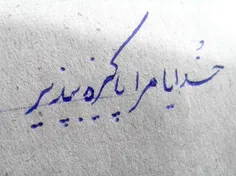 خدایا مرا پاکیزه بپذیر